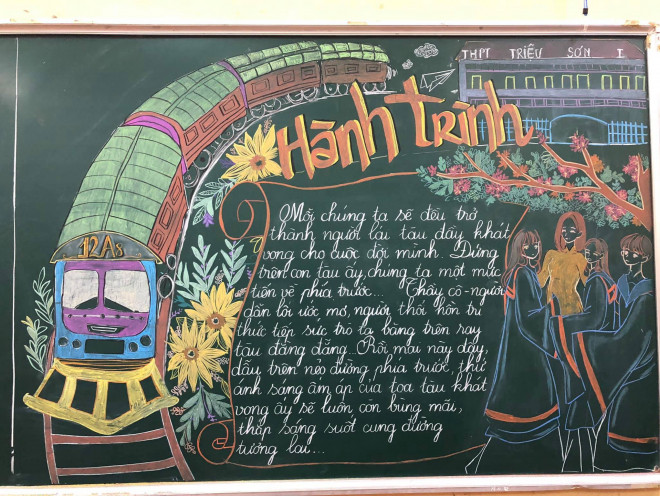 THPT TRIỆU SƠN I
Hành trình
12A5
Mỗi chúng ta sẽ đều trở
thành người lái tàu đầy khát
vọng cho cuộc đời mình. Đứng
trên con tàu ấy, chúng ta một mực
tiến về phía trước... Thầy cô - người
dẫn lối ước mơ, người thổi hồn tri
thức tiếp sức trò ta băng trên ray
tàu đằng đẵng. Rồi mai này đây,
dẫu trên nẻo đường phía trước, thứ
ánh sáng ấm áp của toa tàu khát
vọng ấy sẽ luôn còn bừng mãi,
thắp sáng suốt cung đường
tương lai...